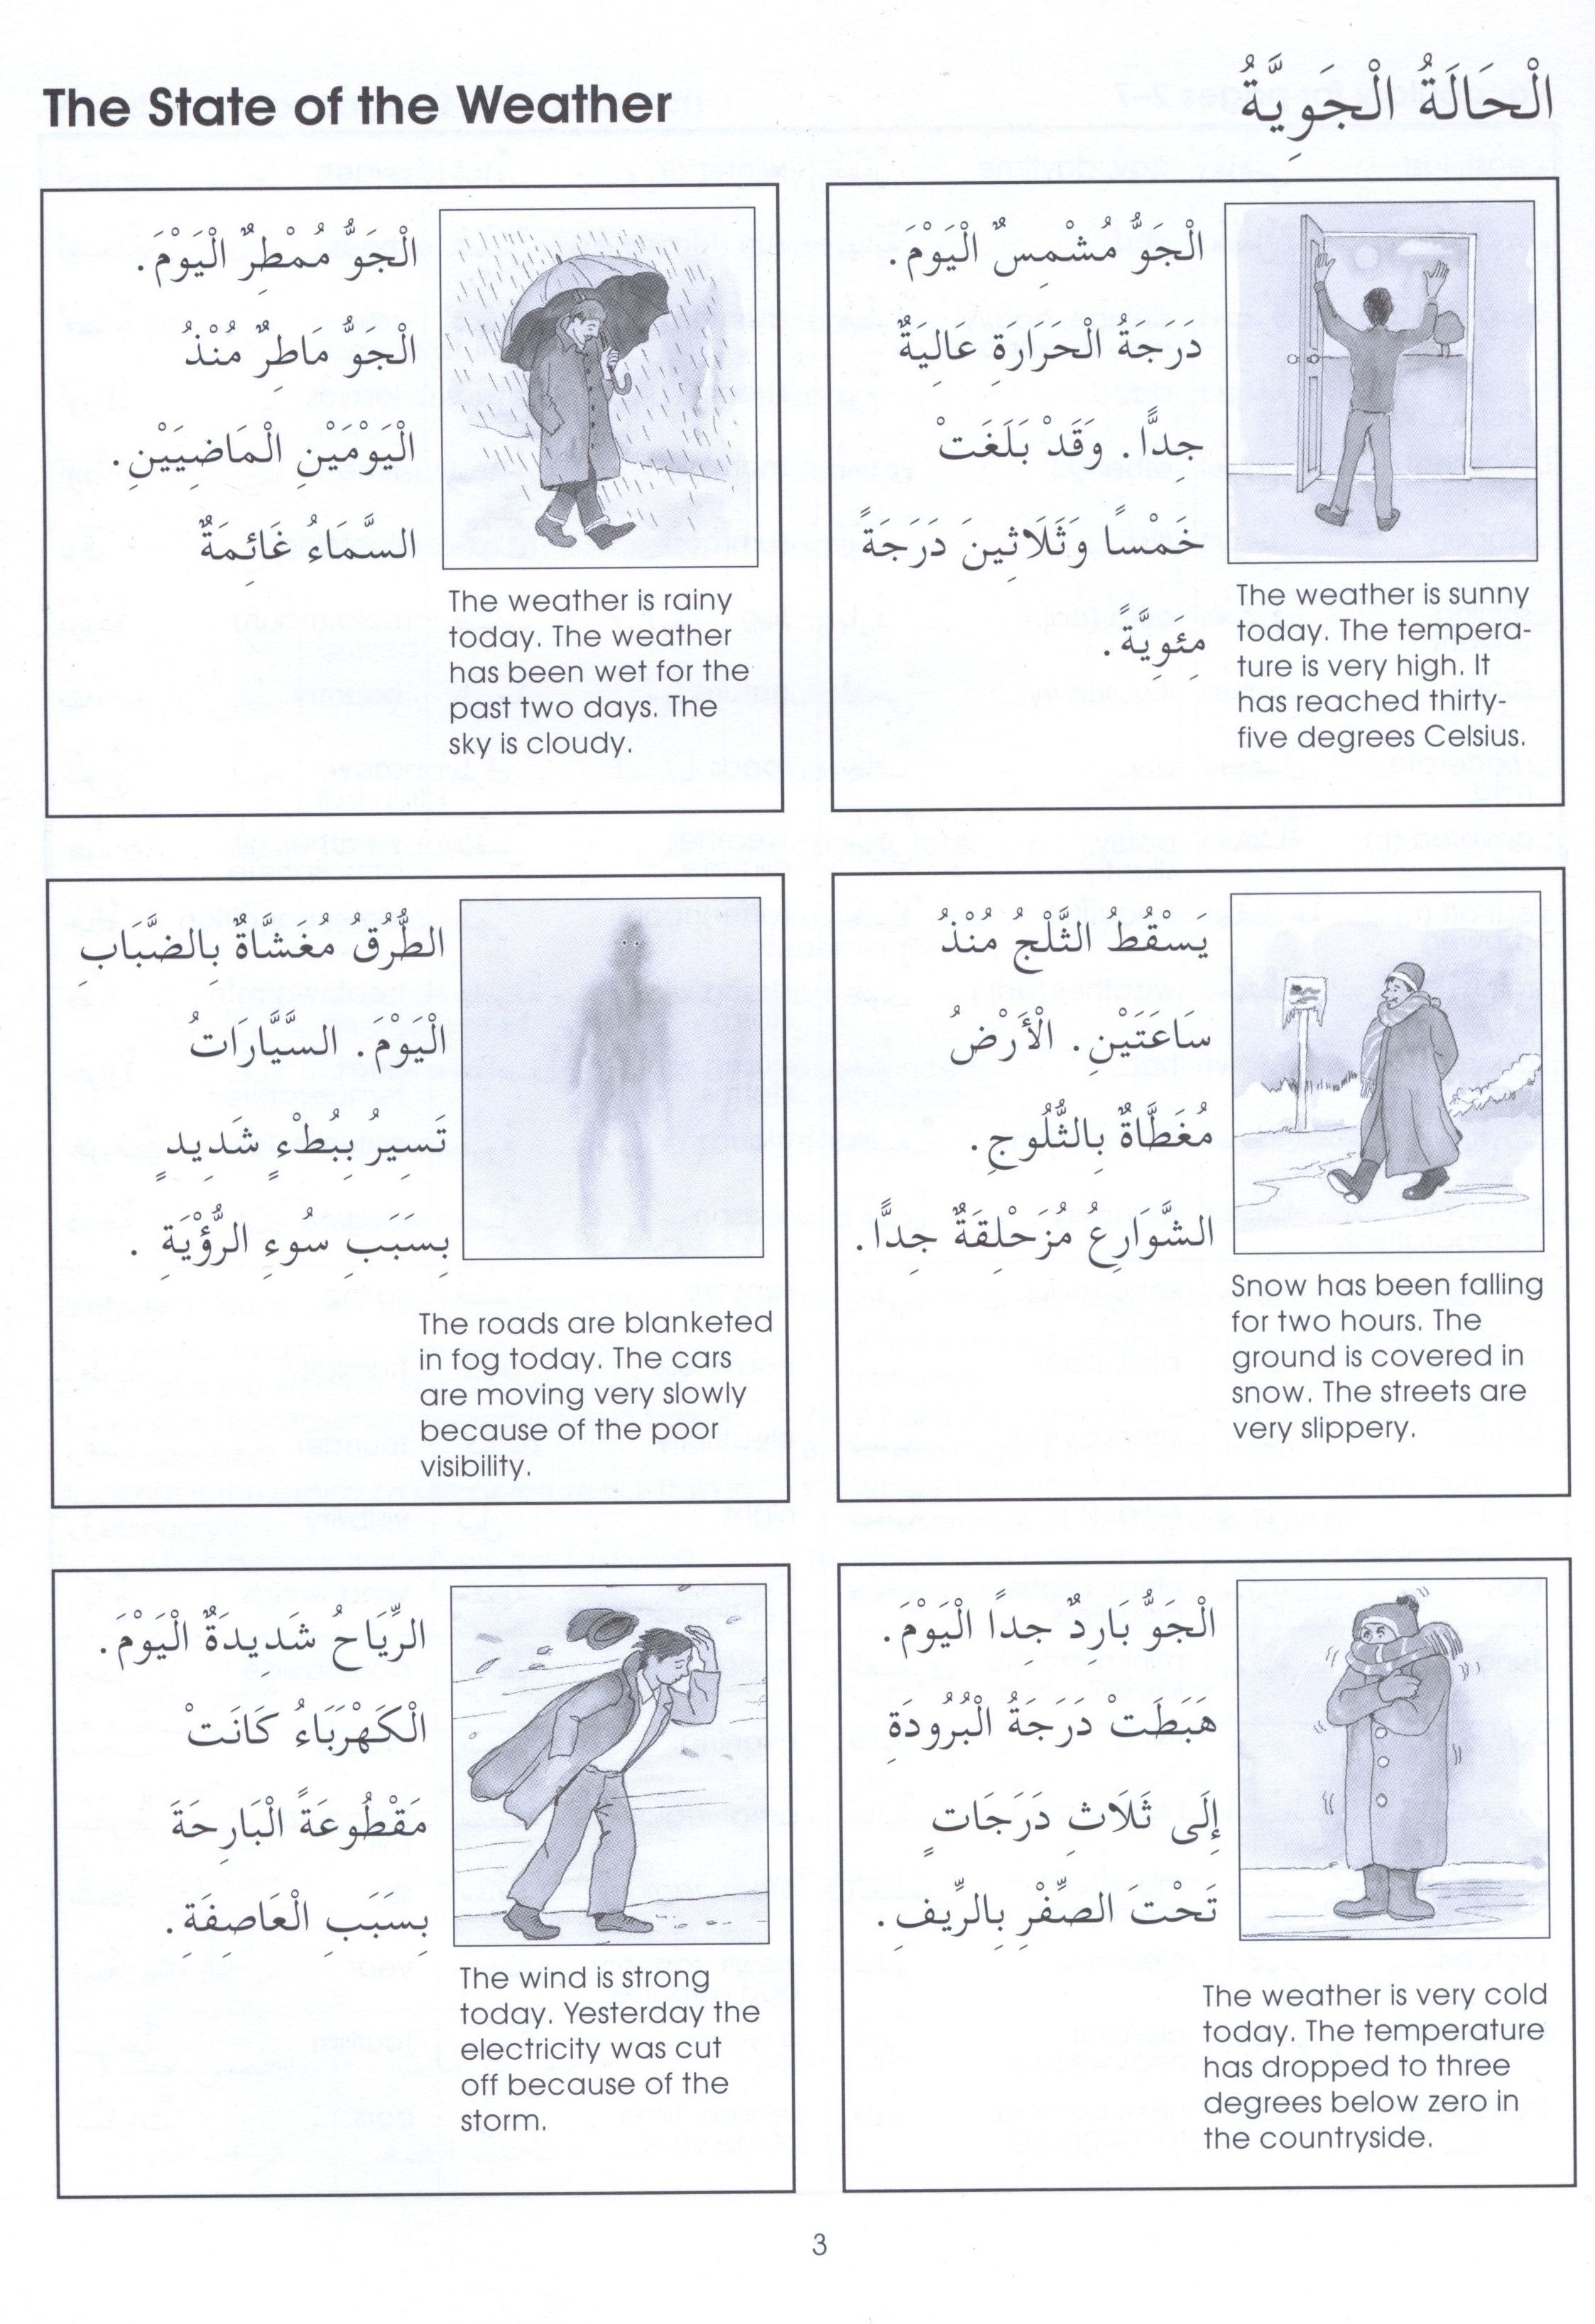 The State of the Weather
الْحَالَةُ الْجَوِيَّةُ
الْجَوُّ مُشْمِسٌ الْيَوْمَ.
دَرَجَةُ الْحَرَارَةِ عَالِيَةٌ
جِدًّا. وَقَدْ بَلَغَتْ
خَمْسًا وَثَلَاثِينَ دَرَجَةً
مِئَوِيَّةً.
The weather is sunny
today. The tempera-
ture is very high. It
has reached thirty-
five degrees Celsius.
الْجَوُّ مُمْطِرٌ الْيَوْمَ.
الْجَوُّ مَاطِرٌ مُنْذُ
الْيَوْمَيْنِ الْمَاضِيَيْنِ.
السَّمَاءُ غَائِمَةٌ
The weather is rainy
today. The weather
has been wet for the
past two days. The
sky is cloudy.
يَسْقُطُ الثَّلْجُ مُنْذُ
سَاعَتَيْنِ. الْأَرْضُ
مُغَطَّاةٌ بِالثُّلُوجِ.
الشَّوَارِعُ مُزَحْلِقَةٌ جِدًّا.
Snow has been falling
for two hours. The
ground is covered in
snow. The streets are
very slippery.
الطُّرُقُ مُغَشَّاةٌ بِالضَّبَابِ
الْيَوْمَ. السَّيَّارَاتُ
تَسِيرُ بِبُطْءٍ شَدِيدٍ
بِسَبَبِ سُوءِ الرُّؤْيَةِ .
The roads are blanketed
in fog today. The cars
are moving very slowly
because of the poor
visibility.
الْجَوُّ بَارِدٌ جِدًا الْيَوْمَ.
هَبَطَتْ دَرَجَةُ الْبُرُودَةِ
إِلَى ثَلَاثِ دَرَجَاتٍ
تَحْتَ الصِّفْرِ بِالرِّيفِ.
The weather is very cold
today. The temperature
has dropped to three
degrees below zero in
the countryside.
الرِّيَاحُ شَدِيدَةٌ الْيَوْمَ.
الْكَهْرَبَاءُ كَانَتْ
مَقْطُوعَةً الْبَارِحَةَ
بِسَبَبِ الْعَاصِفَةِ.
The wind is strong
today. Yesterday the
electricity was cut
off because of the
storm.
3